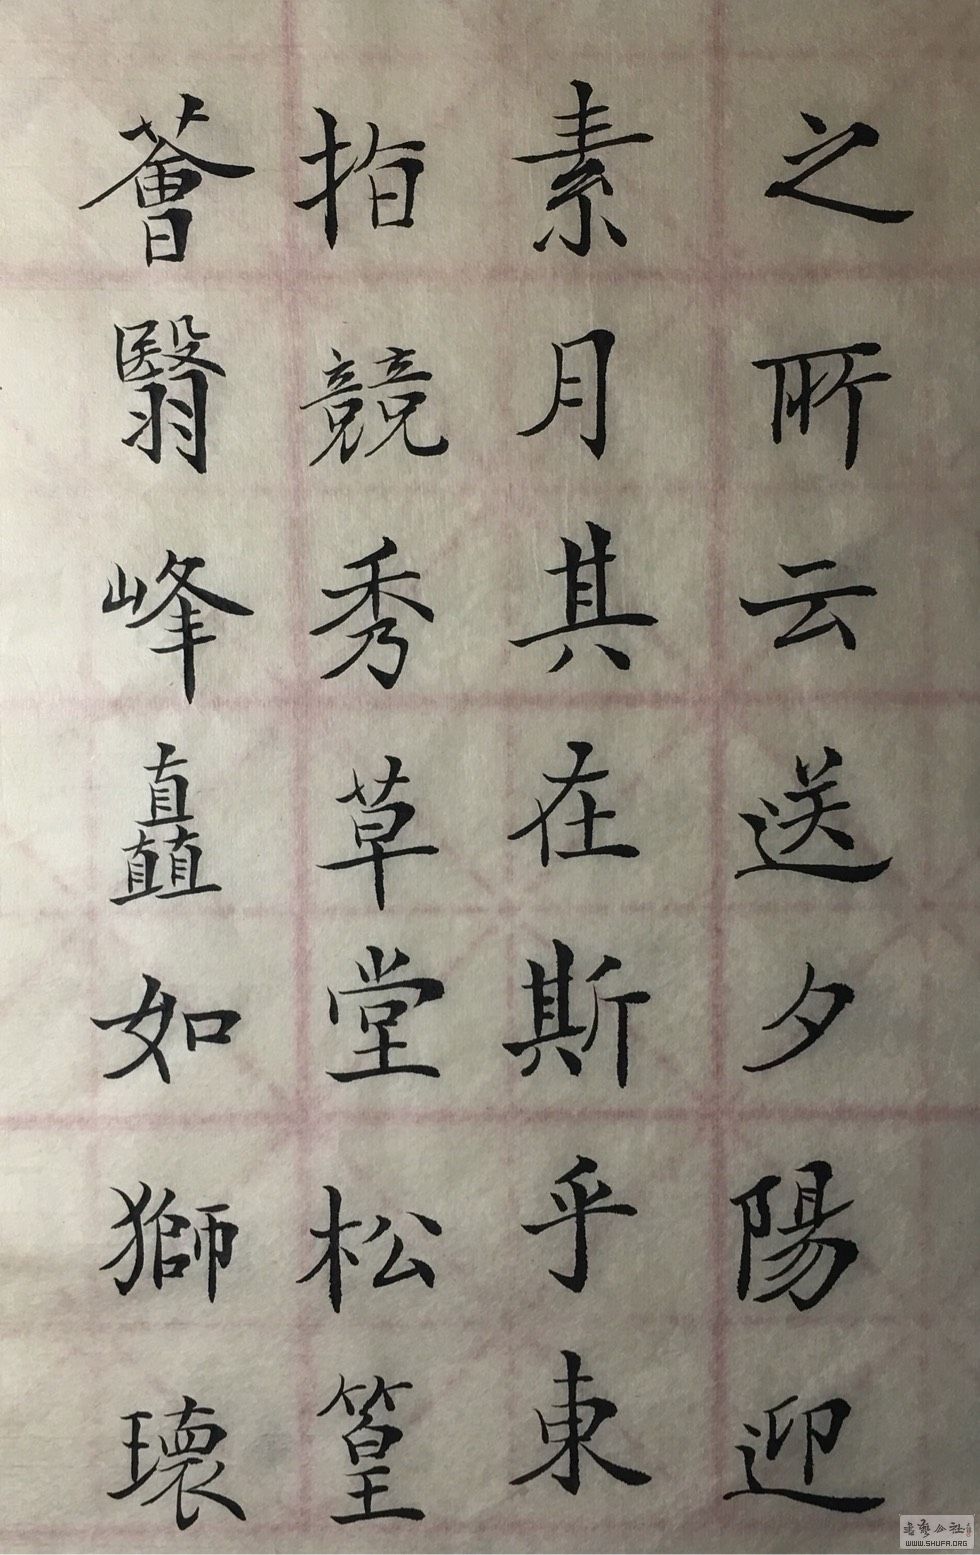 之所云送夕陽迎
素月其在斯乎東
指競秀草堂松篁
薈翳峰矗如獅瓌
書藝公社
WWW.SHUFA.ORG